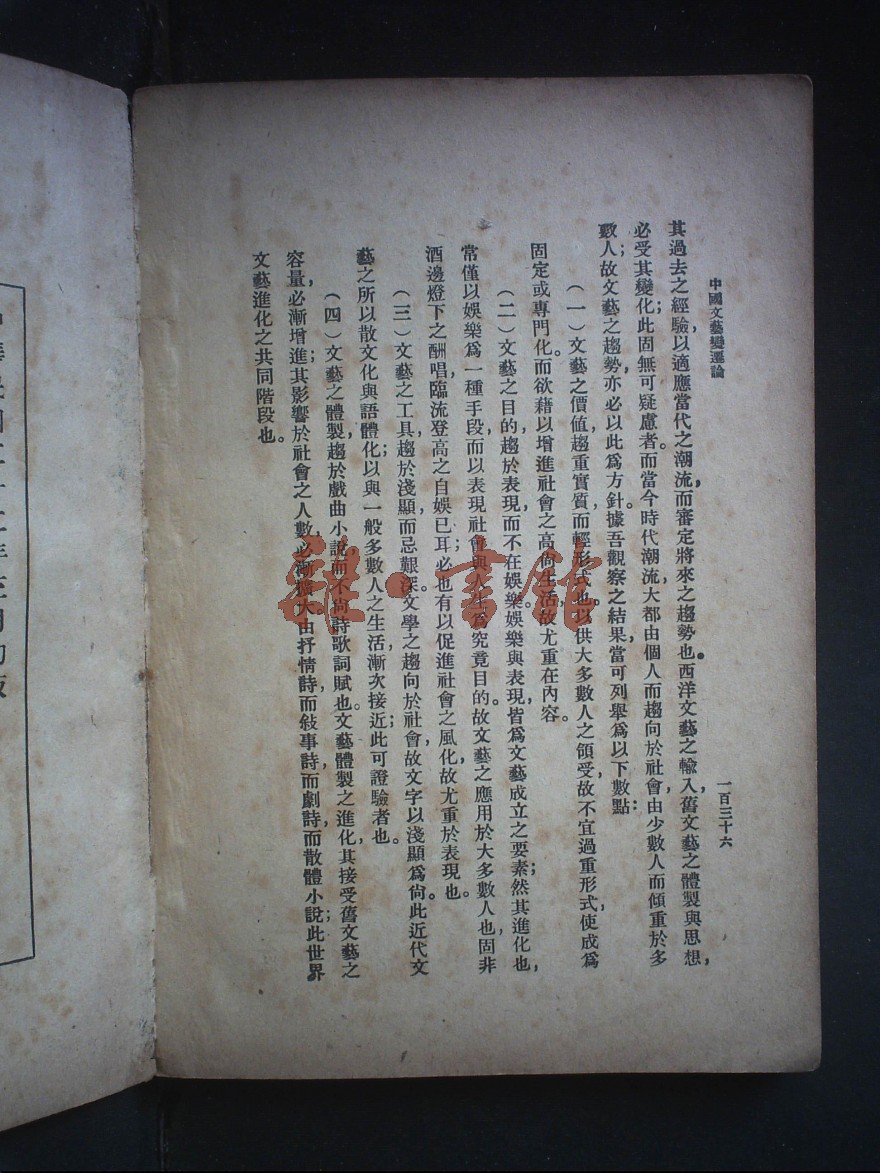 中國文藝變遷論
一百三十六
其過去之經驗以適應當代之潮流，而審定將來之趨勢也。西洋文藝之輸入，舊文藝之體製與思想，
必受其變化；此固無可疑慮者。而當今時代潮流，大都由個人而趨向於社會，由少數人而傾重於多
數人；故文藝之趨勢，亦必以此爲方針。據吾觀察之結果，當可列舉爲以下數點：
（一）文藝之價值，趨重實質而輕形式也。以供大多數人之領受，故不宜過重形式，使成爲
固定或專門化。而欲藉以增進社會之高尚生活，故尤重在內容。
（二）文藝之目的，趨於表現，而不在娛樂。娛樂與表現，皆爲文藝成立之要素；然其進化也，
常僅以娛樂爲一種手段，而以表現社會與人生爲究竟目的。故文藝之應用於大多數人也，固非
酒邊燈下之酬唱，臨流登高之自娛已耳；必也有以促進社會之風化，故尤重於表現也。
（三）文藝之工具，趨於淺顯而忌艱深。文學之趨向於社會，故文字以淺顯爲尙。此近代文
藝之所以散文化與語體化，以與一般多數人之生活漸次接近；此可證驗者也。
（四）文藝之體製，趨於戲曲小說，而不尙詩歌詞賦也。文藝體製之進化，其接受舊文藝之
容量，必漸增進；其影響於社會之人數，必漸擴大。由抒情詩而敍事詩而劇詩而散體小說；此世界
文藝進化之共同階段也。
雜·書館